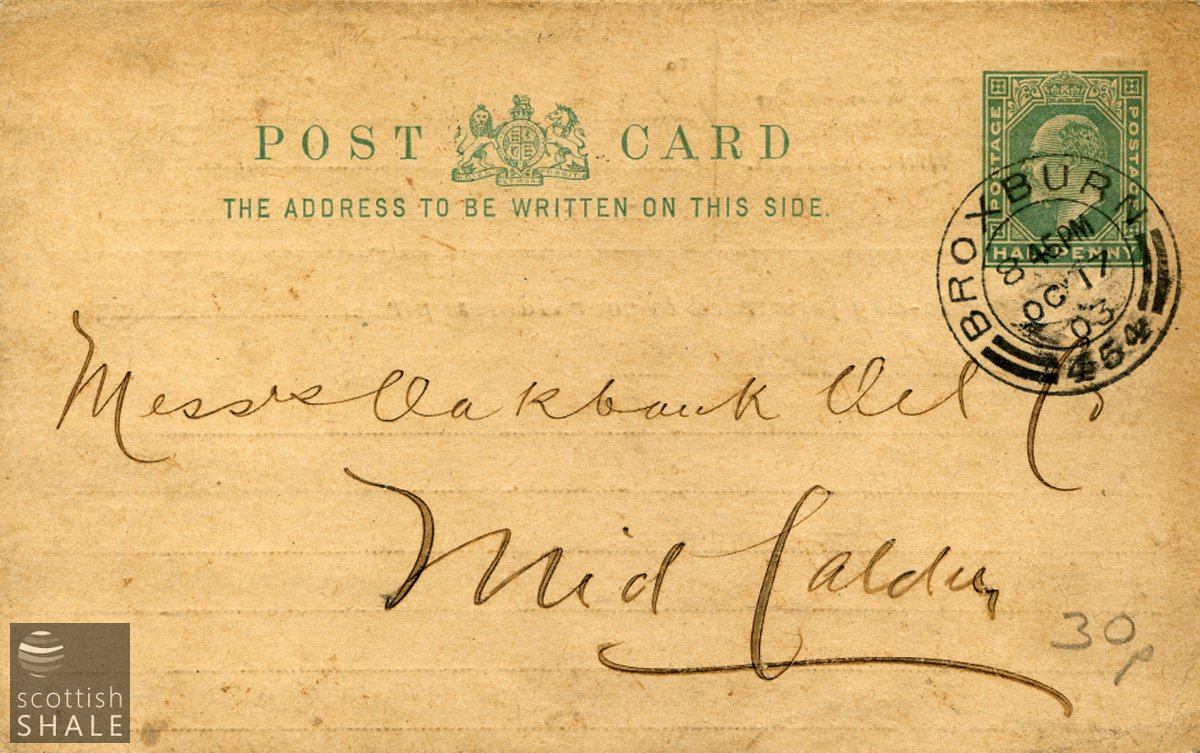 POST CARD
THE ADDRESS TO BE WRITTEN ON THIS SIDE.
POSTAGE POSTAGE
HALFPENNY
BROXBURN
8 45PM
OC 17
03
454
Messrs Oakbank Oil Co
Mid Calder
30p
scottish
SHALE